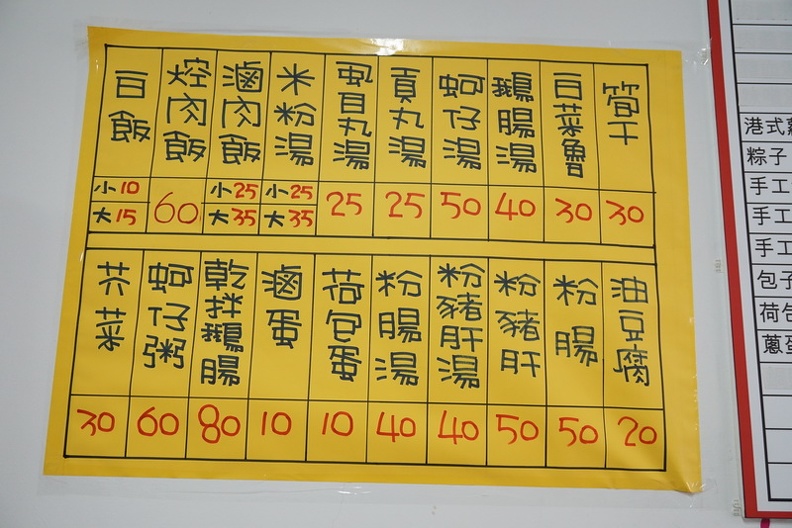 白飯 小10 大15
焢肉飯 60
滷肉飯 小25 大35
米粉湯 小25 大35
虱目丸湯 25
貢丸湯 25
蚵仔湯 50
鵝腸湯 40
白菜魯 30
筍干 30
芥菜 30
蚵仔粥 60
乾拌鵝腸 80
滷蛋 10
荷包蛋 10
粉腸湯 40
粉豬肝湯 40
粉豬肝 50
粉腸 50
油豆腐 20
港式
粽子
手工
手工
手工
包子
荷包
蔥蛋